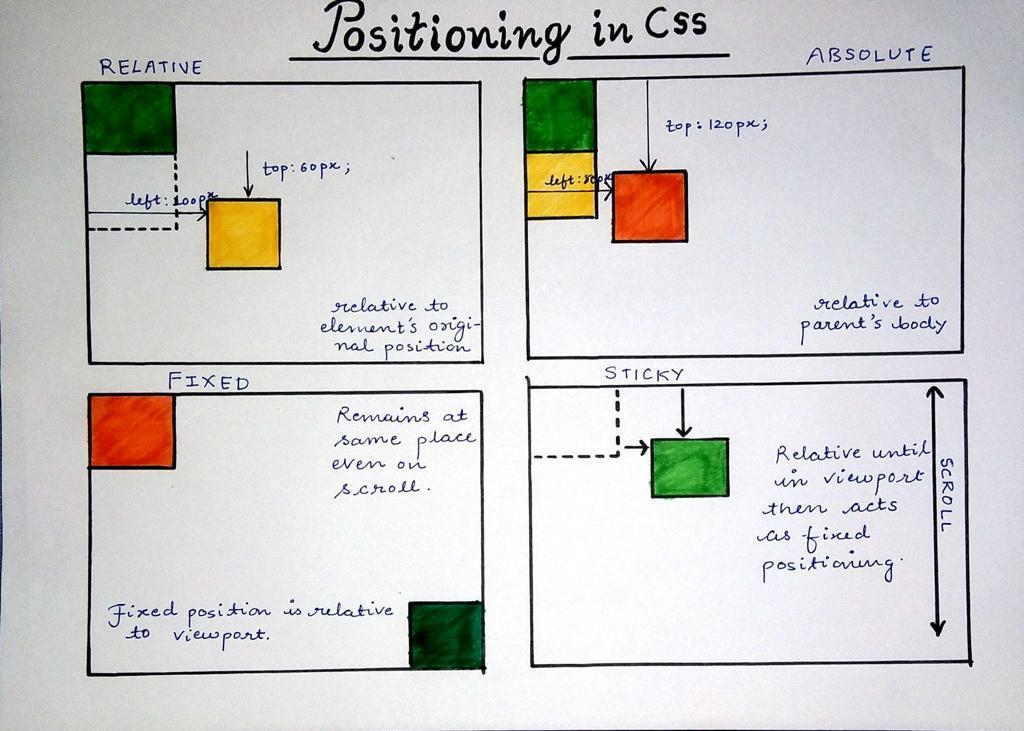 Positioning in Css
RELATIVE
top: 60px;
left: 100px
relative to
element's origi-
nal position
ABSOLUTE
top: 120px;
left: 80px
relative to
parent's body
FIXED
Remains at
same place
even on
scroll.
Fixed position is relative
to viewport.
STICKY
Relative until
in viewport
then acts
as fixed
positioning.
SCROLL